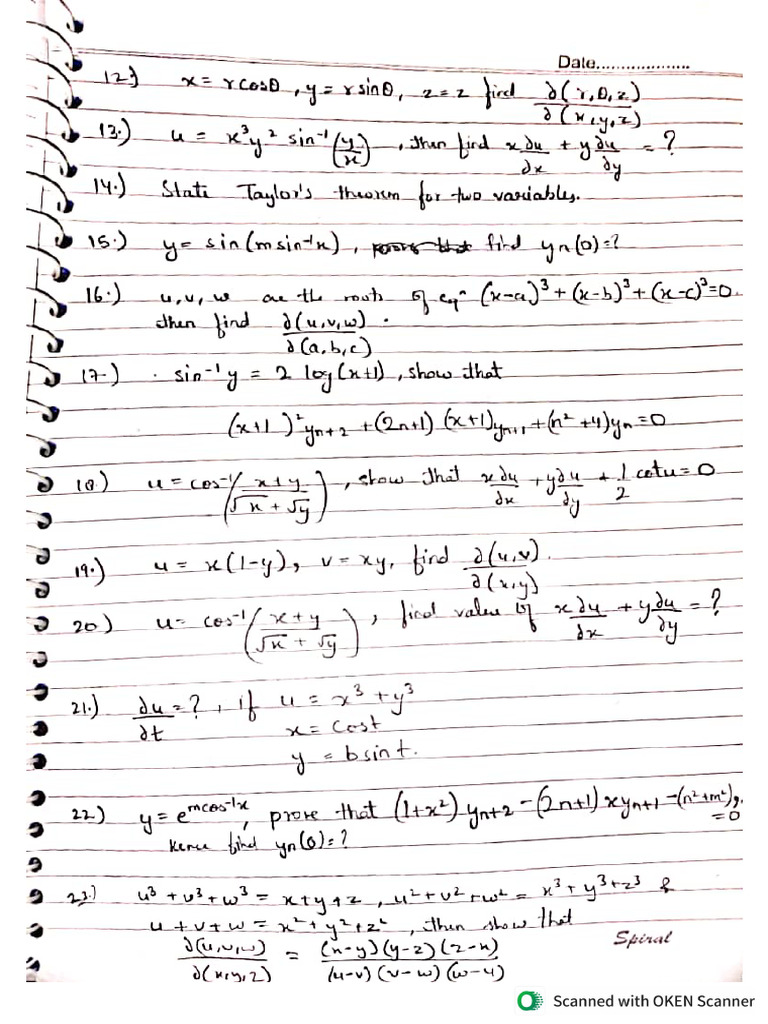 Date...................
12.) x = rcosθ, y = rsinθ, z = z find ∂(r,θ,z)/∂(x,y,z)
13.) u = x³y² sin⁻¹(y/x), then find x ∂u/∂x + y ∂u/∂y = ?
14.) State Taylor's theorem for two variables.
15.) y = sin(msin⁻¹x), find yn(0)=?
16.) u,v,w are the roots of eqⁿ (x-a)³+(x-b)³+(x-c)³=0.
then find ∂(u,v,w)/∂(a,b,c).
17.) sin⁻¹y = 2 log(x+1), show that
(x+1)²yn+2 +(2n+1)(x+1)yn+1+(n²+4)yn=0
18.) u = cos⁻¹(x+y/√x+√y), show that x ∂u/∂x + y ∂u/∂y + 1/2 cotu = 0
19.) u = x(1-y), v = xy, find ∂(u,v)/∂(x,y).
20.) u = cos⁻¹(x+y/√x+√y), find value of x ∂u/∂x + y ∂u/∂y = ?
21.) ∂u/∂t = ?, if u = x³+y³
x = cost
y = bsint.
22.) y = e^mcos⁻¹x, prove that (1+x²)yn+2-(2n+1)xyn+1-(n²+m²)y.=0
Hence find yn(0)=?
23.) u³+v³+w³ = x+y+z, u²+v²+w² = x³+y³+z³ &
u+v+w = x²+y²+z², then show that
∂(u,v,w)/∂(x,y,z) = (x-y)(y-z)(z-x)/(u-v)(v-w)(w-u)
Spiral
Scanned with OKEN Scanner